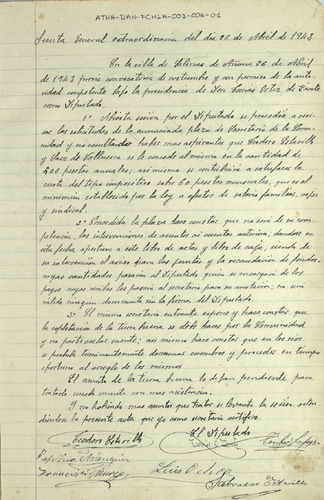 ATHA-DAH-FCHSA-003-006-01
Junta General extraordinaria del dia 26 de Abril de 1943
En la villa de Salinas de Añana 26 de Abril
de 1943 previa convocatoria de costumbre y con permiso de la auto-
ridad competente bajo la presidencia de Don Tomás Ortiz de Zarate
como Diputado.
1º Abierta sesión por el Diputado se procedió a revi-
sar las solicitudes de la anunciada plaza de Secretario de la Comu-
nidad y no resultando haber mas aspirantes que Teodoro
y Saez de Valluerca se le concede al mismo en la cantidad de
500 pesetas anuales; asi mismo se contribuira a satisfacer la
cuota del tipo impositivo sobre 60 pesetas mensuales, que es el
minimun establecido por la ley a efectos de salario familiar, vejez
y sindical.
2º Concedida la plaza hace constar que no será de su com-
petencia, las intervenciones de asuntos ni cuentas anterior, dandose en
esta fecha apertura a este libro de actas y libro de caja, siendo de
su intervención el aviso para las juntas y la recaudación de fondos,
cuyas cantidades pasarán al Diputado quien se encargará de los
pagos cuyos recibos los pasará al secretario para su anotación; no sera
valido ningun documento sin la firma del Diputado.
3º El mismo secretario entrante expone y hace constar que
la explotación de la tierra buena se debe hacer por la Comunidad
y no particular mente; asi mismo hace constar que en los rios
se prohibe terminantemente descansar escombros y proceder en tiempo
oportuno al arreglo de los mismos.
El asunto de la tierra buena todo pendiente para
tratarlo nueb mente con mas asistencia.
Y no habiendo mas asuntos que tratar se levanta la sesión exten-
diendose la presente acta que yo como secretario certifico.
El Diputado
Teodoro
Francisco
Luis Ochoa
Salvador